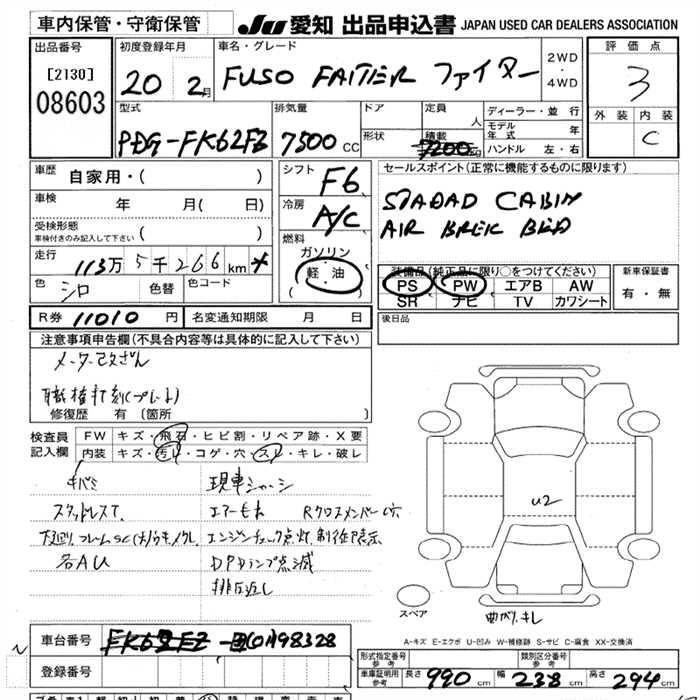 車内保管・守衛保管
JU 愛知 出品申込書 JAPAN USED CAR DEALERS ASSOCIATION
出品番号
[2130]
08603
初度登録年月
20 年 2月
車名・グレード
FUSO FAITER ファイター
2WD
4WD
評価点
3
外装 内装
C
型式
PDG-FK62FZ
排気量
7500 CC
ドア
形状
定員
人
積載
7200 kg
ディーラー・並行
モデル年式 年
ハンドル 左・右
車歴
自家用・( )
車検
年 月( 日)
受検形態
車検付きのみ記入して下さい ( )
走行
113万 5千 266 km *
色
シロ
色替
色コード
シフト
F6
冷房
A/C
燃料
ガソリン
軽・油
( )
セールスポイント(正常に機能するものに限ります)
STADAD CABIN
AIR BREK BED
装備品(純正品に限り○をつけてください)
PS PW エアB AW
SR ナビ TV カワシート
新車保証書
有・無
R券 11010 円
名変通知期限 月 日
後日品
注意事項申告欄(不具合内容等は具体的に記入して下さい)
メーター改ざん
職権打刻(プレート)
修復歴 有 〔箇所 〕
検査員
記入欄
FW キズ・飛石・ヒビ割・リペア跡・X要
内装 キズ・汚レ・コゲ・穴・スレ・キレ・破レ
キバミ 現車シャーシ
スタッドレスT. エアーモレ Rクロスメンバー穴
下廻り、フレームSC(大)
エンジンチェック点灯、制御表示
各AU DPDランプ点滅
排反返し
U2
スペア
曲がり、キレ
A-キズ E-エクボ U-凹み W-補修跡 S-サビ C-腐食 XX-交換済
車台番号
FK62FZ
[01]98328
登録番号
形式指定番号
参考
類別区分番号
参考
車庫証明用
参考
長さ 990 cm 幅 238 cm 高さ 294 cm